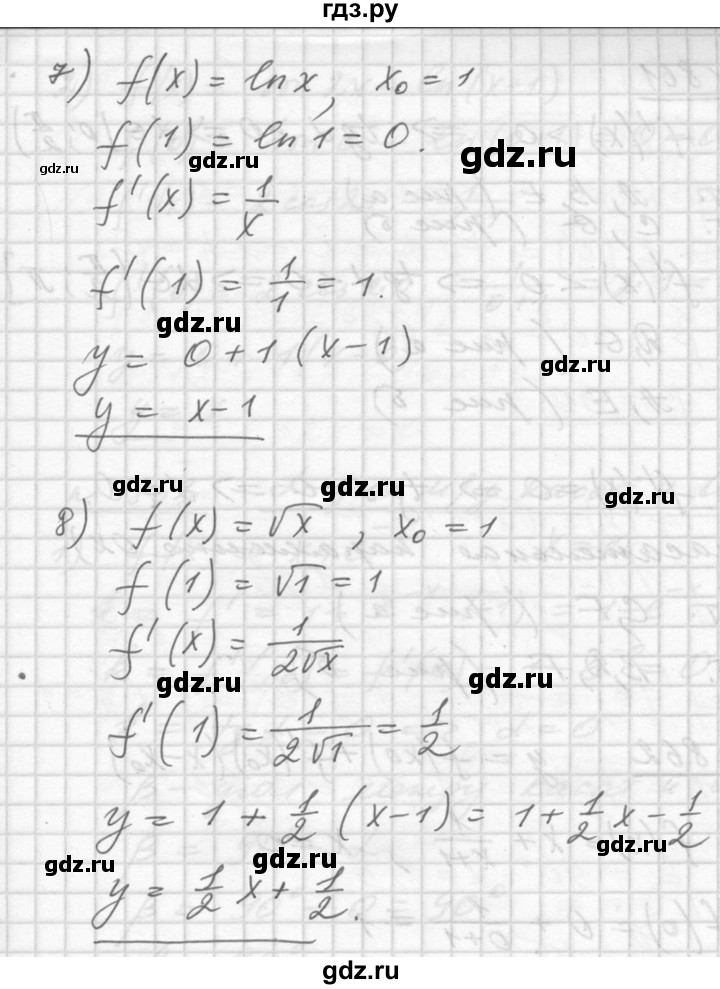 гдз.ру
7) f(x) = ln x, x₀ = 1
f(1) = ln 1 = 0.
gdz.ru
gdz.ru
gdz.ru
f'(x) = 1/x
f'(1) = 1/1 = 1.
gdz.ru
y = 0 + 1 (x - 1)
gdz.ru
y = x - 1
gdz.ru
gdz.ru
gdz.ru
8) f(x) = √x, x₀ = 1
f(1) = √1 = 1
f'(x) = 1/(2√x)
gdz.ru
gdz.ru
f'(1) = 1/(2√1) = 1/2
y = 1 + 1/2 (x - 1) = 1 + 1/2 x - 1/2
gdz.ru
gdz.ru
gdz.ru
y = 1/2 x + 1/2.
gdz.ru